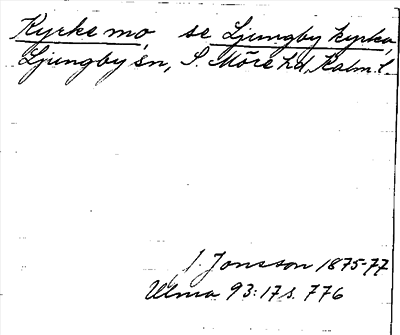 Kyrkemo, se Ljungby kyrka
Ljungby sn, S. Möre hd, Kalm. l.
J. Jonsson 1875-77
Ulma 93:17 s. 776